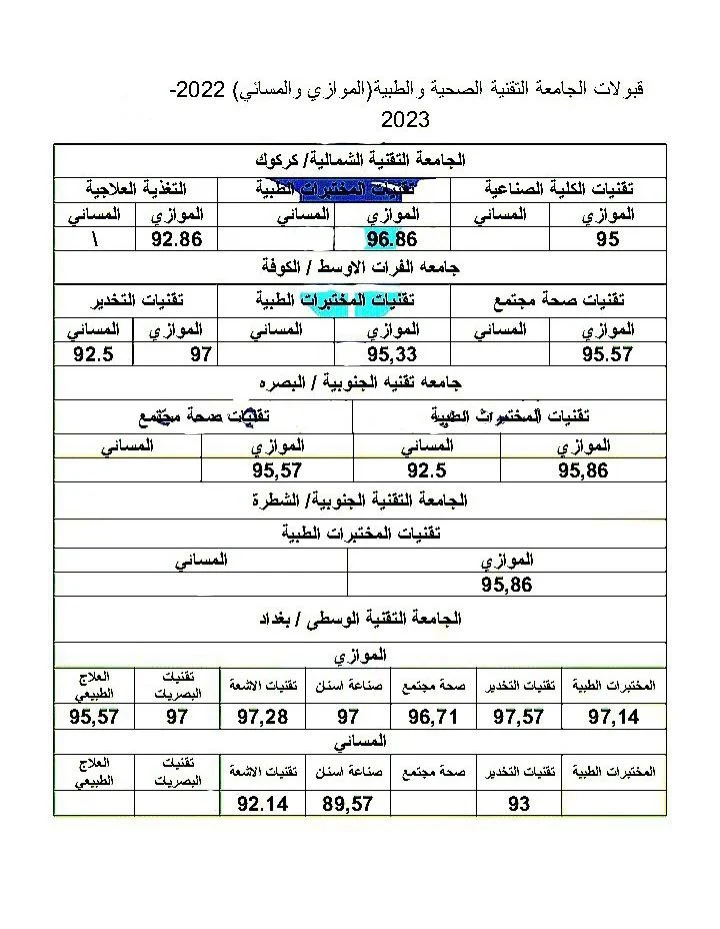 قبولات الجامعة التقنية الصحية والطبية(الموازي والمسائي) 2022-
2023
الجامعة التقنية الشمالية/ كركوك
تقنيات الكلية الصناعية تقنيات المختبرات الطبية التغذية العلاجية
الموازي المسائي الموازي المسائي الموازي المسائي
95 96.86 92.86 \
جامعه الفرات الاوسط / الكوفة
تقنيات صحة مجتمع تقنيات المختبرات الطبية تقنيات التخدير
الموازي المسائي الموازي المسائي الموازي المسائي
95.57 95,33 97 92.5
جامعه تقنيه الجنوبية / البصره
تقنيات المختبرات الطبية تقنيات صحة مجتمع
الموازي المسائي الموازي المسائي
95,86 92.5 95,57
الجامعة التقنية الجنوبية/ الشطرة
تقنيات المختبرات الطبية
الموازي المسائي
95,86
الجامعة التقنية الوسطى / بغداد
الموازي
المختبرات الطبية تقنيات التخدير صحة مجتمع صناعة اسنان تقنيات الاشعة تقنيات البصريات العلاج الطبيعي
97,14 97,57 96,71 97 97,28 97 95,57
المسائي
المختبرات الطبية تقنيات التخدير صحة مجتمع صناعة اسنان تقنيات الاشعة تقنيات البصريات العلاج الطبيعي
93 89,57 92.14